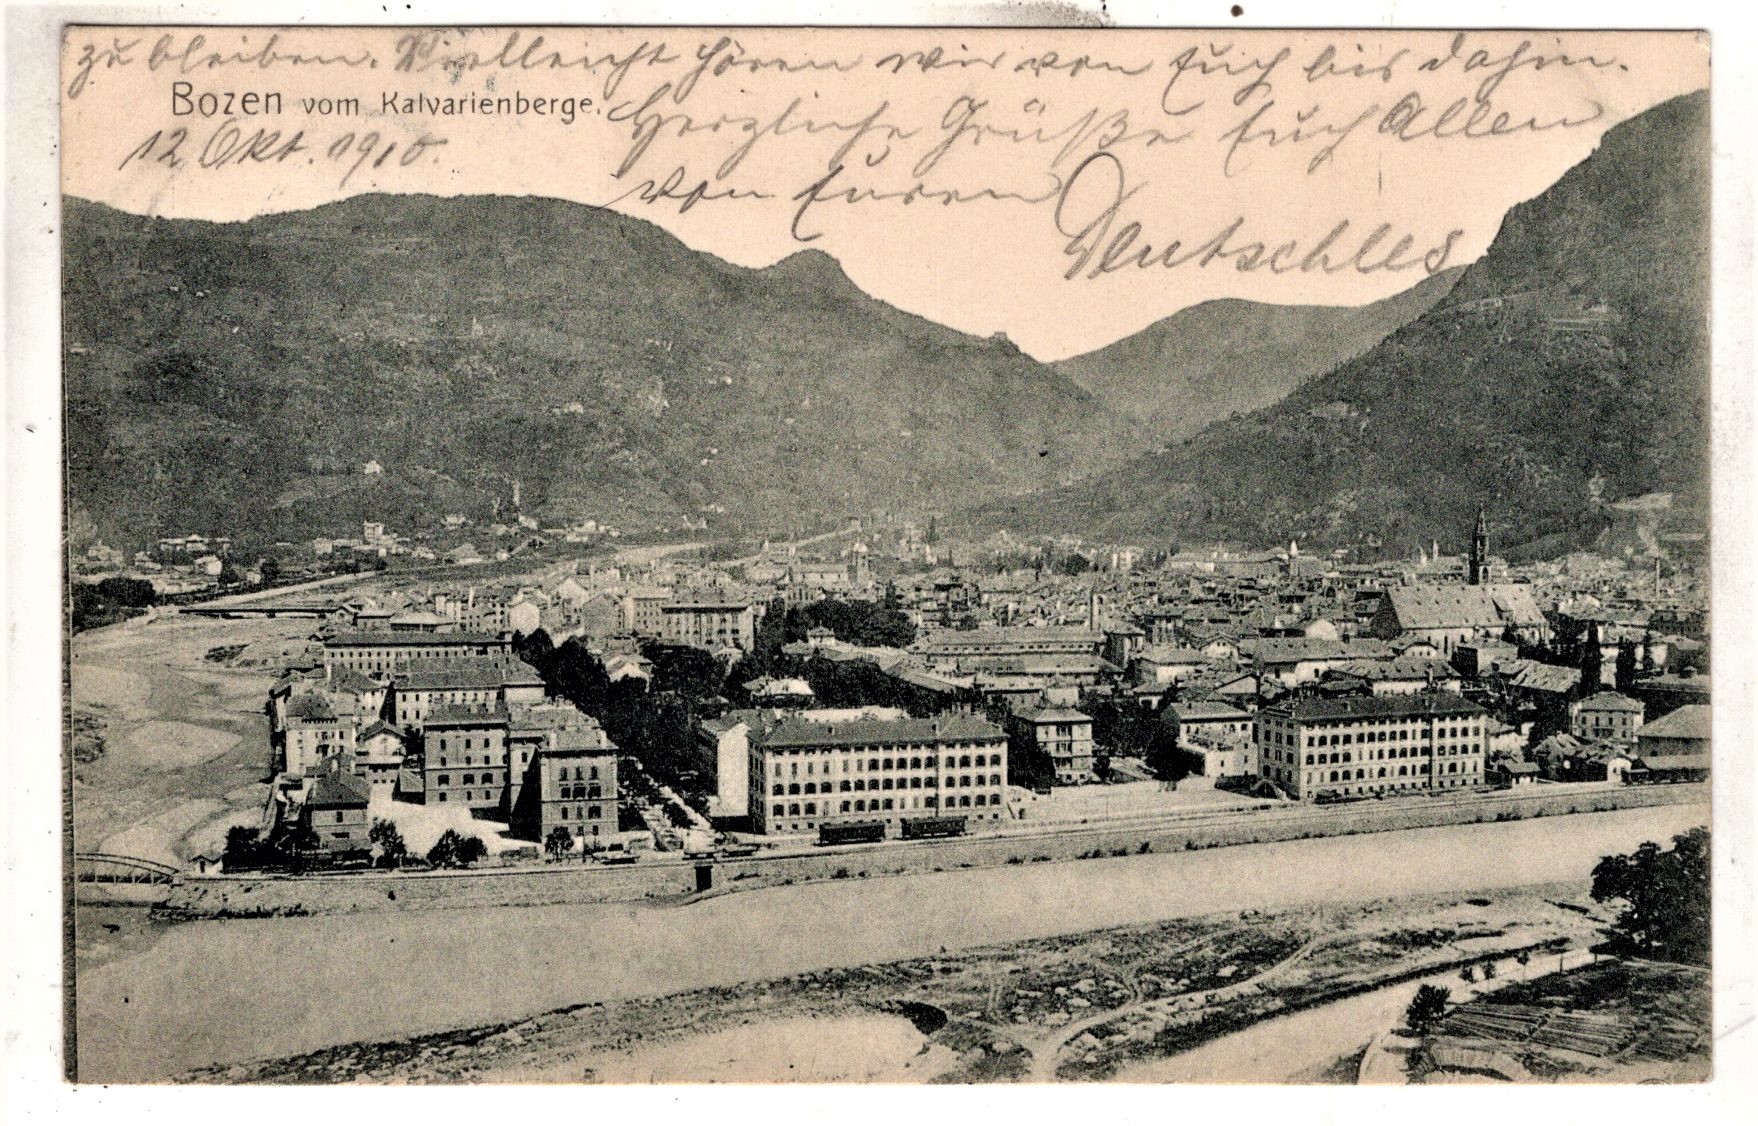 zu bleiben. Vielleicht hören wir von Euch bis dahin.
Bozen vom Kalvarienberge.
12 Okt. 1910.
Herzliche Grüße Euch Allen
von Euren
Deutschles